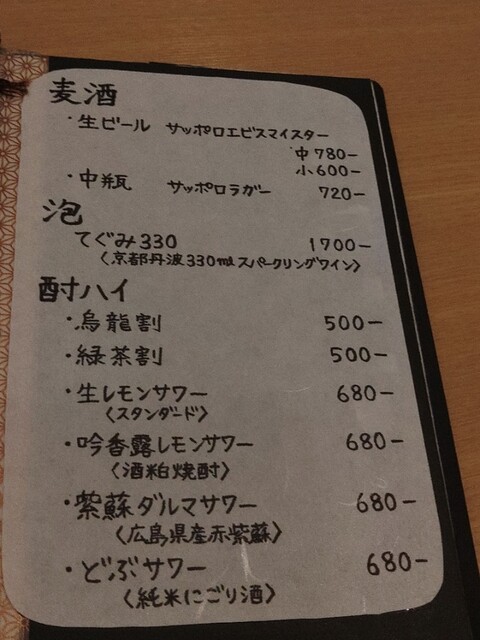 麦酒
・生ビール サッポロエビスマイスター
中780-
小600-
・中瓶 サッポロラガー 720-
泡
てぐみ330 1700-
〈京都丹波330mlスパークリングワイン〉
酎ハイ
・烏龍割 500-
・緑茶割 500-
・生レモンサワー 680-
〈スタンダード〉
・吟香露レモンサワー 680-
〈酒粕焼酎〉
・紫蘇ダルマサワー 680-
〈広島県産赤紫蘇〉
・どぶサワー 680-
〈純米にごり酒〉